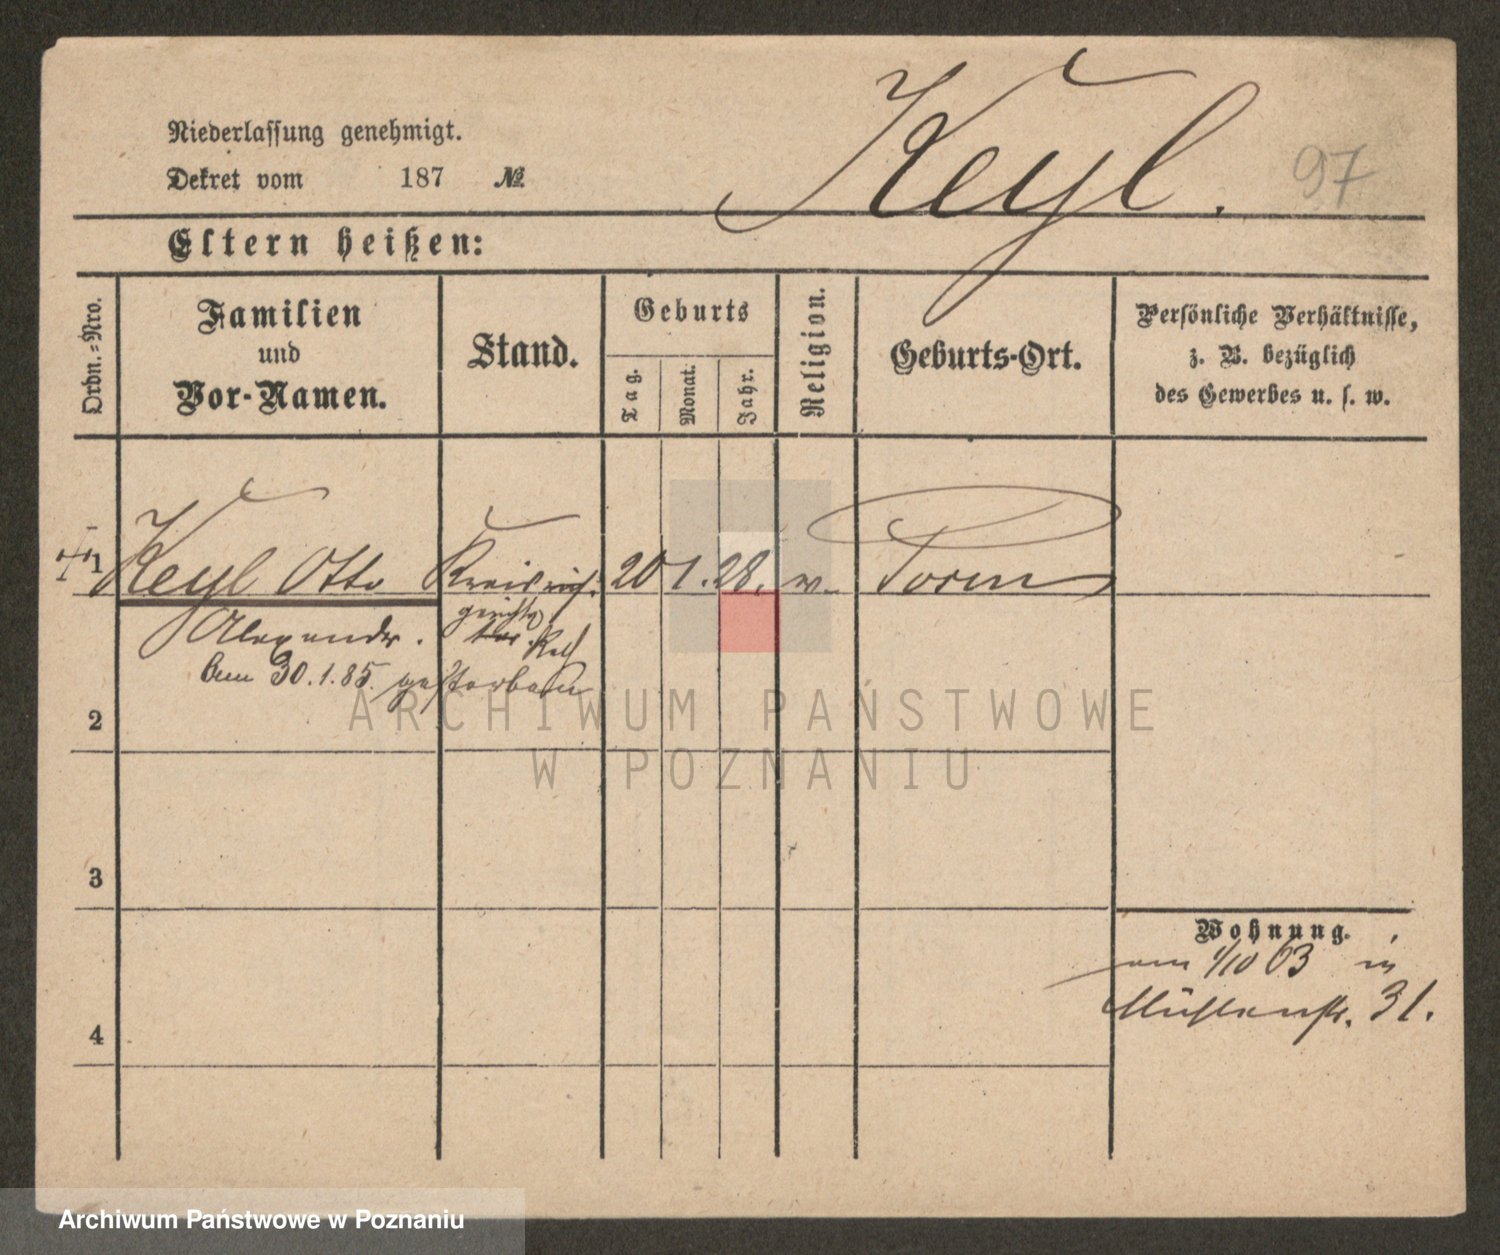 Keyl.
97
Niederlassung genehmigt.
Dekret vom 187 №
Eltern heißen:
Ordn.-Nro.
Familien
und
Vor-Namen.
Stand.
Geburts
Tag.
Monat.
Jahr.
Religion.
Geburts-Ort.
Persönliche Verhältnisse,
z. B. bezüglich
des Gewerbes u. s. w.
1 Keyl Otto 20 1. 28.
Alexander.
30.1.85. gestorben
2
3
4
Wohnung.
am 1/10 63 in
Mühlenstr. 31.
ARCHIWUM PAŃSTWOWE
W POZNANIU
Archiwum Państwowe w Poznaniu